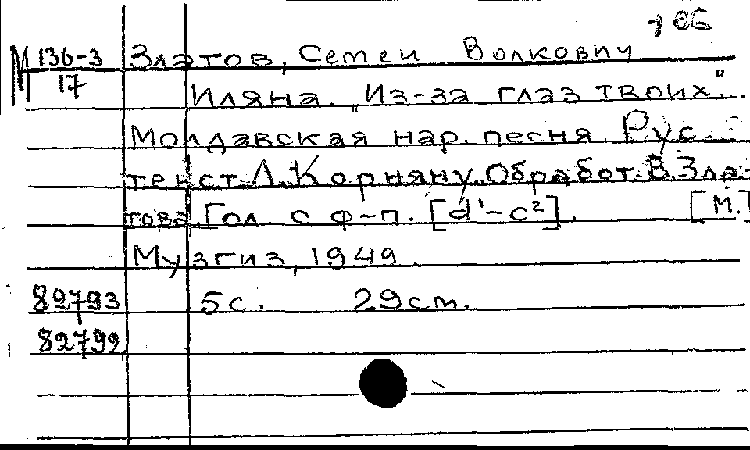 М 136-3 Златов, Семен Волкович
17
Иляна. "Из-за глаз твоих"..
Молдавская нар. песня. Рус.
текст Л. Корняну. Обработ. В. Зла-
това [Гол. с ф-п. [d'-c²]. [М.]
Музгиз, 1949.
82793 5с. 29см.
82792